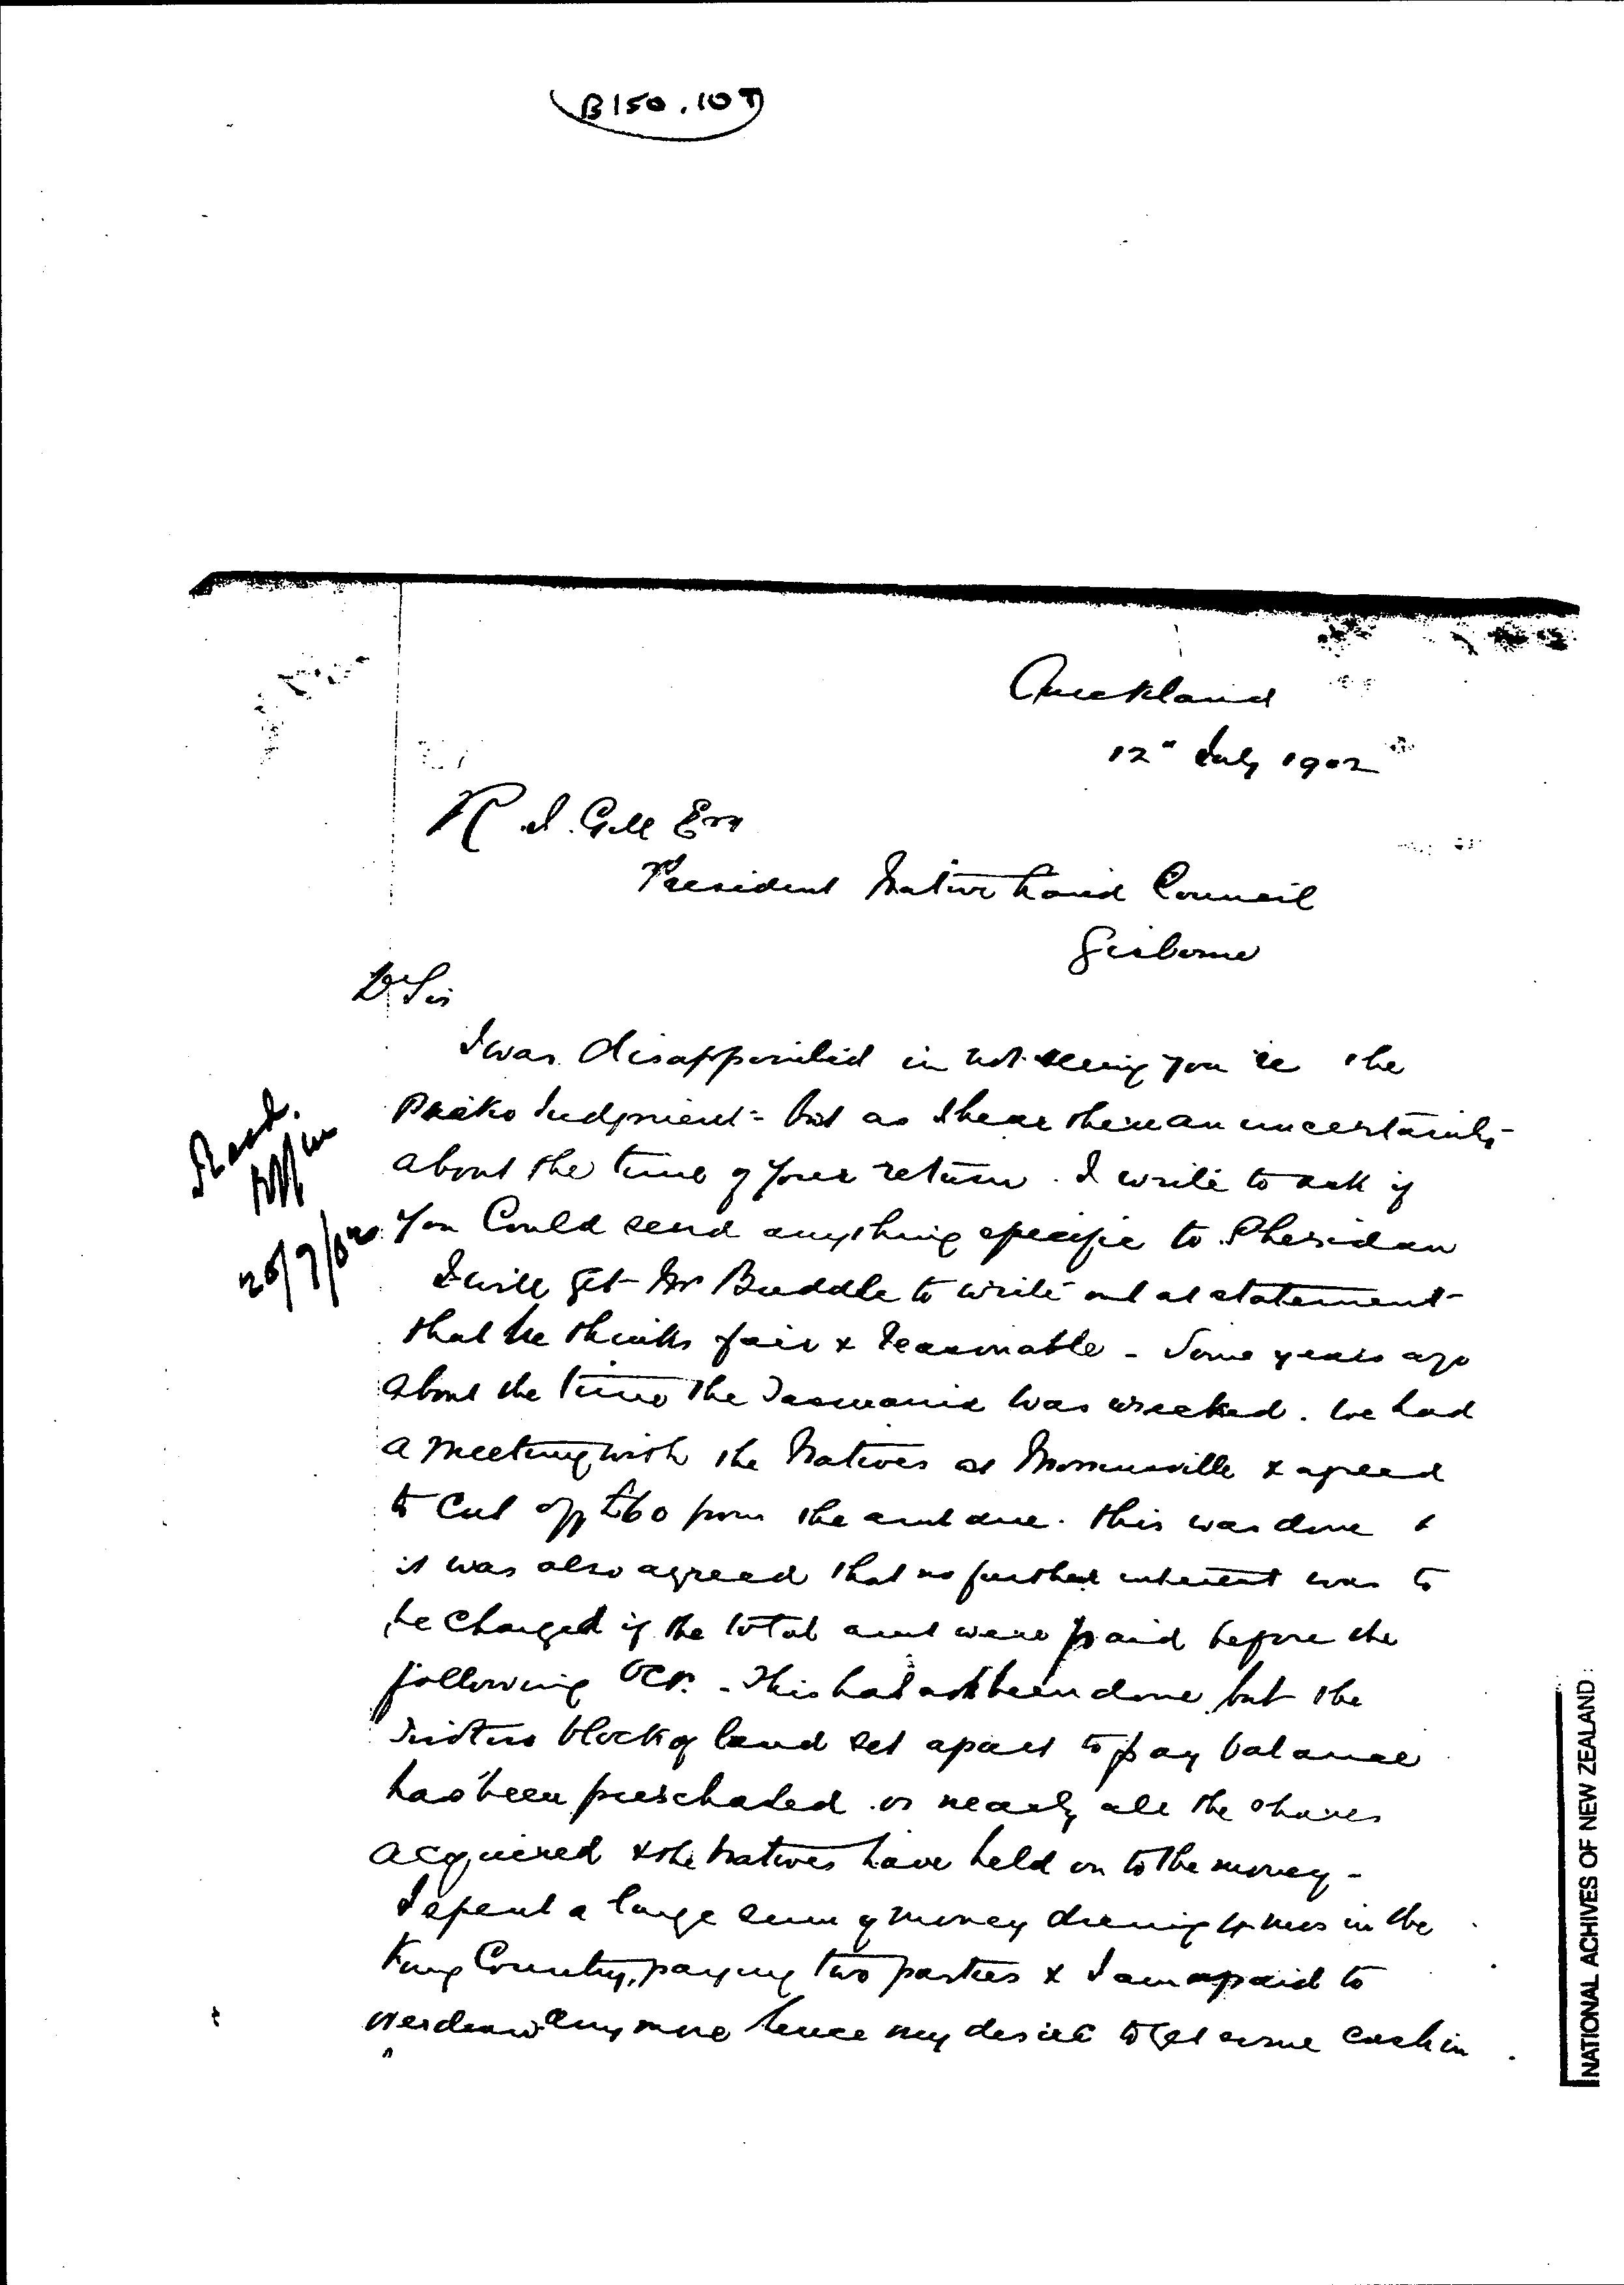 B150.109
Auckland
12" July 1902
R. J. Gill Esq
President Native Land Council
Gisborne
Dr Sir
I was disappointed in not seeing you re the
Piako Judgment - but as I hear there an uncertainty
about the time of your return. I write to ask if
you Could send anything specific to Sheridan
I will get Mr Buddle to write out a statement
that he thinks fair & reasonable - Some years ago
about the time the Tasmania was wrecked. we had
a meeting with the Natives at Morrinsville & agreed
to cut off £60 from the amt due. this was done &
it was also agreed that no further interest was to
be Charged if the total amt were paid before the
following Oct. - This has not been done but the
block of land set apart to pay balance
has been purchased or nearly all the shares
acquired & the Natives have held on to the money -
I spent a large sum of money during 4 mos in the
King Country, paying two parties & I am afraid to
overdraw any more hence my desire to get some cash in
Read.
25/7/02
NATIONAL ACHIVES OF NEW ZEALAND